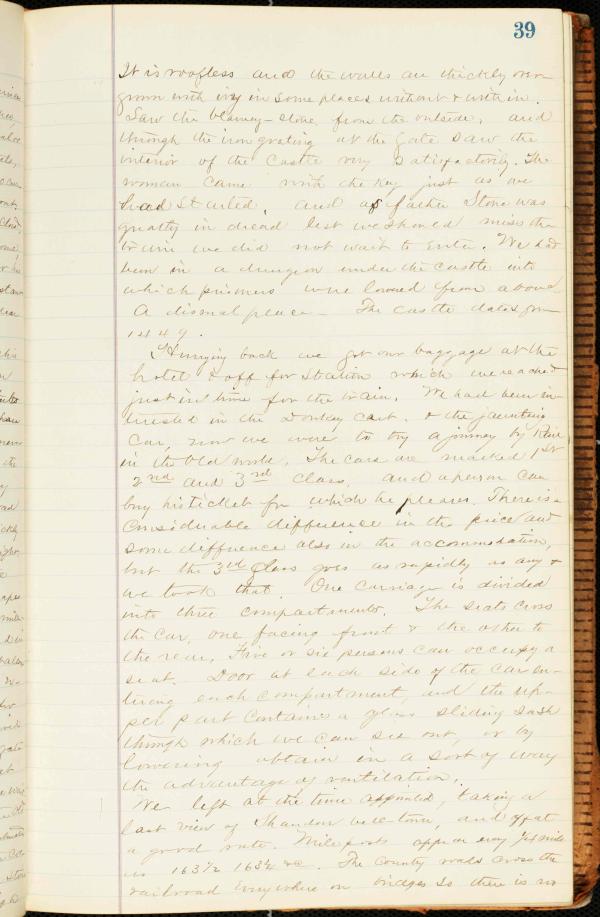 39
It is roofless and the walls are thickly over
grown with ivy in some places without & within.
Saw the blarney-stone from the outside, and
through the iron grating at the gate saw the
interior of the Castle very satisfactorily. The
woman came with the key just as we
had started, and as father Stone was
greatly in dread lest we should miss the
train we did not wait to enter. We had
been in a dungeon under the castle into
which prisoners were lowered from above
A dismal place – The castle dates from
1449.
Hurrying back we got our baggage at the
hotel & off for station which we reached
just in time for the train. We had been in-
terested in the Donkey cart, & the jaunting
Car, now we were to try a journey by Rail
in the Old world. The cars are marked 1st
2nd and 3rd Class, and a person can
buy his ticket for which he pleases. There is a
considerable difference in the price and
some difference also in the accommodation,
but the 3rd Class goes as rapidly as any &
we took that. One carriage is divided
into three compartments. The seats cross
the car, one facing front & the other to
the rear. Five or six persons can occupy a
seat. Door at each side of the car en-
tering each compartment, and the up-
per part contains a glass sliding sash
through which we can see out, or by
lowering obtain in a sort of way
the advantage of ventilation.
We left at the time appointed, taking a
last view of Shandon bell town, and off at
a good rate. Mile posts appear every
as 163 1/2 &c. The County roads cross the
railroad everywhere on bridges so there is no